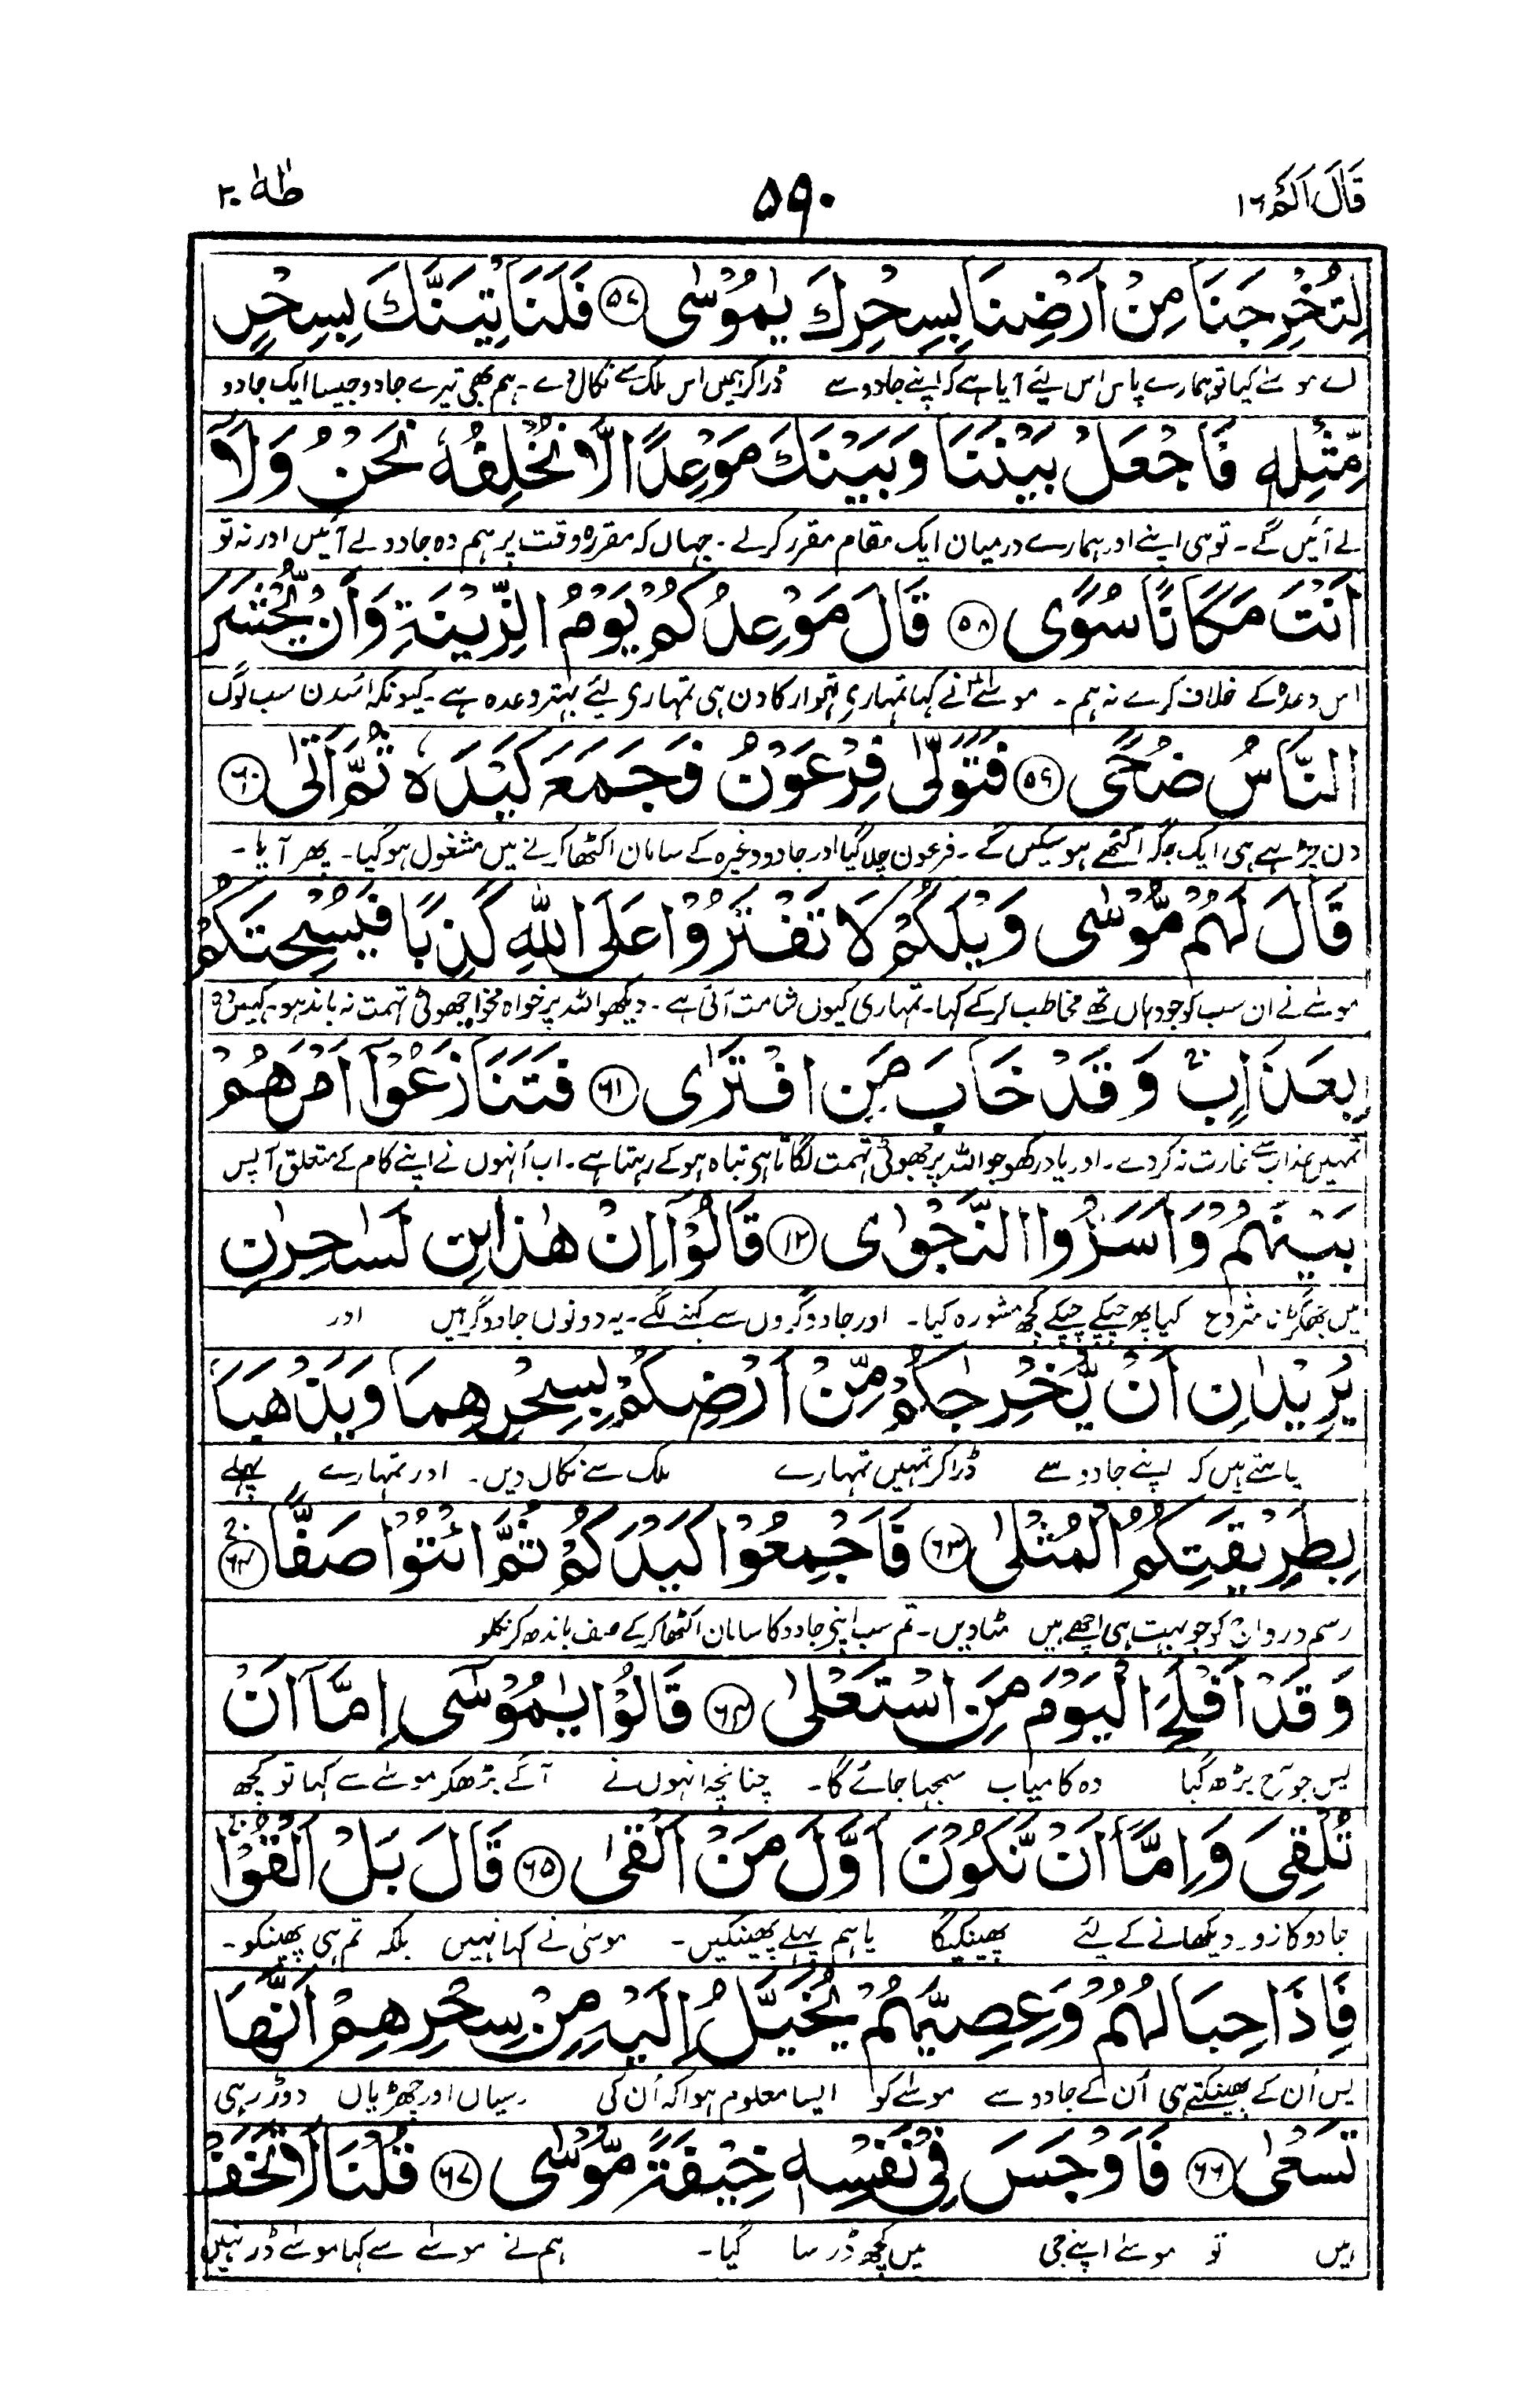 قَالَ اَلَمْ ١٦
٥٩٠
طٰهٰ ٢٠
لِتُخْرِجَنَا مِنْ اَرْضِنَا بِسِحْرِكَ يٰمُوْسٰى ٥٧ فَلَنَاْتِيَنَّكَ بِسِحْرٍ
اے موسےٰ کیا تو ہمارے پاس اس لئے آیا ہے کہ اپنے جادو سے ڈرا کر ہمیں اس ملک سے نکال دے ۔ ہم بھی تیرے جادو جیسا ایک جادو
مِّثْلِهٖ فَاجْعَلْ بَيْنَنَا وَبَيْنَكَ مَوْعِدًا لَّا نُخْلِفُهٗ نَحْنُ وَلَآ
لے آئیں گے ۔ تو ہی اپنے اور ہمارے درمیان ایک مقام مقرر کرلے ۔ جہاں کہ مقررہ وقت پر ہم وہ جادو لے آئیں اور نہ تو
اَنْتَ مَكَانًا سُوًى ٥٨ قَالَ مَوْعِدُكُمْ يَوْمُ الزِّيْنَةِ وَاَنْ يُّحْشَرَ
اس وعدہ کے خلاف کرے نہ ہم ۔ موسےٰ نے کہا تمہاری تہوار کا دن ہی تمہاری لئے بہتر وعدہ ہے ۔ کیونکہ اسدن سب لوگ
النَّاسُ ضُحًى ٥٩ فَتَوَلّٰى فِرْعَوْنُ فَجَمَعَ كَيْدَهٗ ثُمَّ اَتٰى ٦٠
دن چڑہے ہی ایک جگہ اکٹھے ہو سکیں گے ۔ فرعون چلا گیا اور جادو وغیرہ کے سامان اکٹھا کرنے میں مشغول ہو گیا ۔ پھر آیا ۔
قَالَ لَهُمْ مُّوْسٰى وَيْلَكُمْ لَا تَفْتَرُوْا عَلَى اللّٰهِ كَذِبًا فَيُسْحِتَكُمْ
موسےٰ نے ان سب کو جو وہاں تھے مخاطب کر کے کہا ۔ تمہاری کیوں شامت آئی ہے ۔ دیکھو اللہ پر خواہ مخواہ جھوٹی تہمت نہ باندہو ۔ کہیں وہ
بِعَذَابٍ وَقَدْ خَابَ مَنِ افْتَرٰى ٦١ فَتَنَازَعُوْٓا اَمْرَهُمْ
تمہیں عذاب سے غارت نہ کردے ۔ اور یاد رکھو جو اللہ پر جھوٹی تہمت لگاتا ہی تباہ ہو کے رہتا ہے ۔ اب اُنہوں نے اپنے کام کے متعلق آپس
بَيْنَهُمْ وَاَسَرُّوا النَّجْوٰى ١٢ قَالُوْٓا اِنْ هٰذٰىنِ لَسٰحِرٰنِ
میں جھگڑنا شروع کیا پھر چپکے چپکے کچھ مشورہ کیا ۔ اور جادوگروں سے کہنے لگے ۔ یہ دونوں جادوگر ہیں اور
يُرِيْدٰنِ اَنْ يُّخْرِجٰكُمْ مِّنْ اَرْضِكُمْ بِسِحْرِهِمَا وَيَذْهَبَا
چاہتے ہیں کہ اپنے جادو سے ڈرا کر تمہیں تمہارے ملک سے نکال دیں ۔ اور تمہارے پہلے
بِطَرِيْقَتِكُمُ الْمُثْلٰى ٦٣ فَاَجْمِعُوْا كَيْدَكُمْ ثُمَّ ائْتُوْا صَفًّا ٦٤
رسم و رواج کو جو بہت ہی اچھے ہیں مٹا دیں ۔ تم سب اپنے جادو کا سامان اکٹھا کر کے صف باندھ کر نکلو
وَقَدْ اَفْلَحَ الْيَوْمَ مَنِ اسْتَعْلٰى ٦٤ قَالُوْا يٰمُوْسٰٓى اِمَّآ اَنْ
پس جو آج بڑھ گیا وہ کامیاب سمجہا جائے گا ۔ چنانچہ انہوں نے آگے بڑھکر موسےٰ سے کہا تو کچھ
تُلْقِيَ وَاِمَّآ اَنْ نَّكُوْنَ اَوَّلَ مَنْ اَلْقٰى ٦٥ قَالَ بَلْ اَلْقُوْا
جادو کا زور دیکھانے کے لئے پھینکیگا یا ہم پہلے پھینکیں ۔ موسیٰ نے کہا نہیں بلکہ تم ہی پھینکو ۔
فَاِذَا حِبَالُهُمْ وَعِصِيُّهُمْ يُخَيَّلُ اِلَيْهِ مِنْ سِحْرِهِمْ اَنَّهَا
پس اُن کے پھینکتے ہی اُن کے جادو سے موسےٰ کو ایسا معلوم ہوا کہ اُن کی رسیاں اور چھڑیاں دوڑ رہی
تَسْعٰى ٦٦ فَاَوْجَسَ فِيْ نَفْسِهٖ خِيْفَةً مُّوْسٰى ٦٧ قُلْنَا لَا تَخَفْ
ہیں تو موسےٰ اپنے جی میں کچھ ڈر سا گیا ۔ ہم نے موسےٰ سے کہا موسےٰ ڈر نہیں